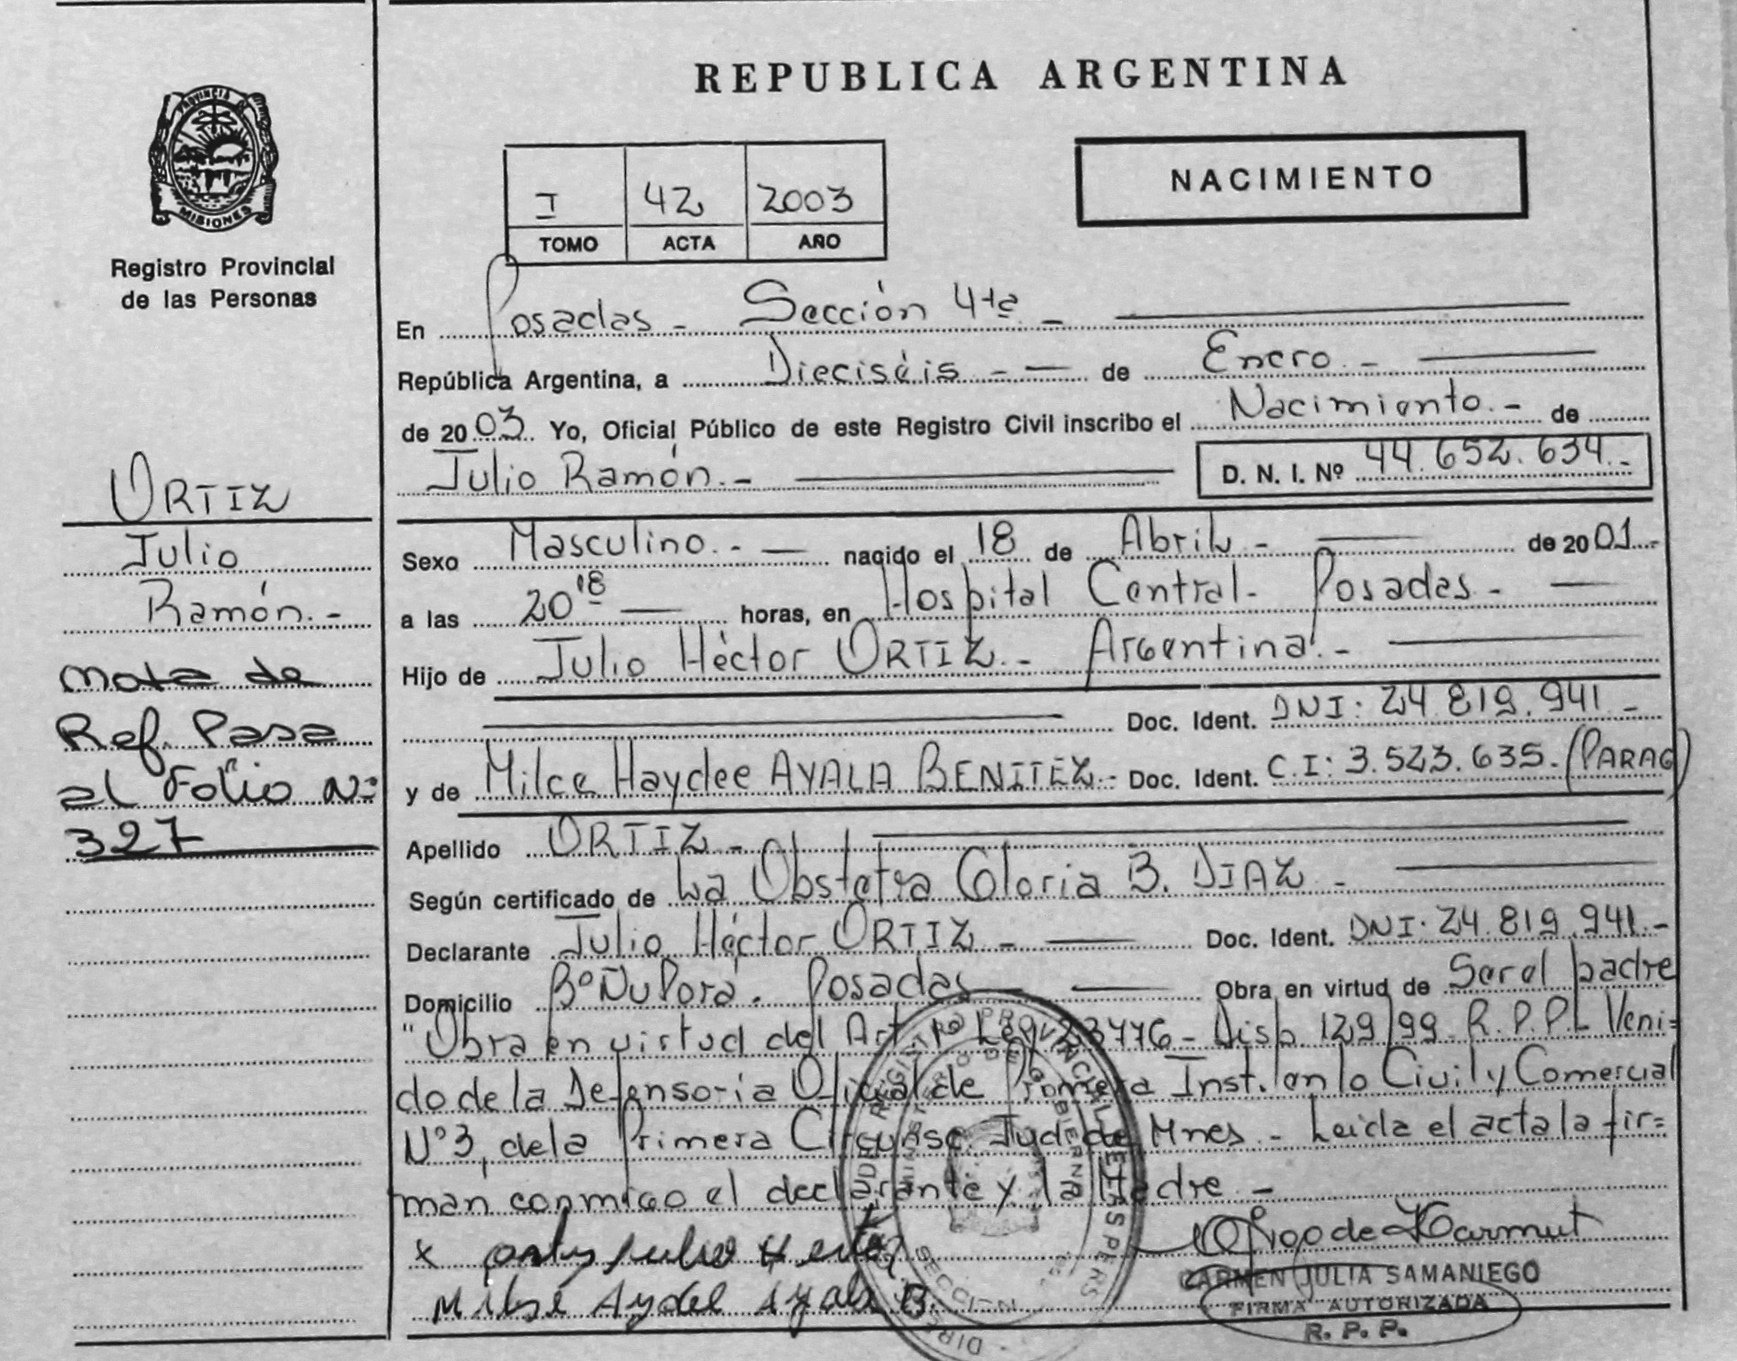 REPUBLICA ARGENTINA
PROVINCIA DE
MISIONES
Registro Provincial
de las Personas
I 42 2003
TOMO ACTA AÑO
NACIMIENTO
En Posadas - Sección 4ta -
República Argentina, a Dieciséis - - de Enero. -
de 2003. Yo, Oficial Público de este Registro Civil inscribo el Nacimiento. - de
Julio Ramón. - D. N. I. Nº 44.652.634. -
ORTIZ
Julio
Ramón. -
Nota de
Ref. Pasa
al Folio Nº
327
Sexo Masculino. - - nacido el 18 de Abril - de 2001. -
a las 20 18 horas, en Hospital Central - Posadas -
Hijo de Julio Héctor ORTIZ - Argentina. -
Doc. Ident. DNI: 24.819.941 -
y de Milce Haydee AYALA BENITEZ - Doc. Ident. C.I: 3.523.635. (PARAG)
Apellido ORTIZ -
Según certificado de La Obstetra Gloria B. DIAZ -
Declarante Julio Héctor ORTIZ - Doc. Ident. DNI: 24.819.941. -
Domicilio Bº Ñu Porá. Posadas Obra en virtud de Ser el padre
"Obra en virtud del Art. Ley 23776 - Disp. 129/99 - R.P.P. Veni=
do de la Defensoria Oficial de Primera Inst. en lo Civil y Comercial
Nº 3, de la Primera Circunsc. Jud. de Mnes - Leida el acta la fir=
man conmigo el declarante y la Madre -
x ortiz julio
Milse Aydee Ayala B.
CARMEN JULIA SAMANIEGO
FIRMA AUTORIZADA
R. P. P.